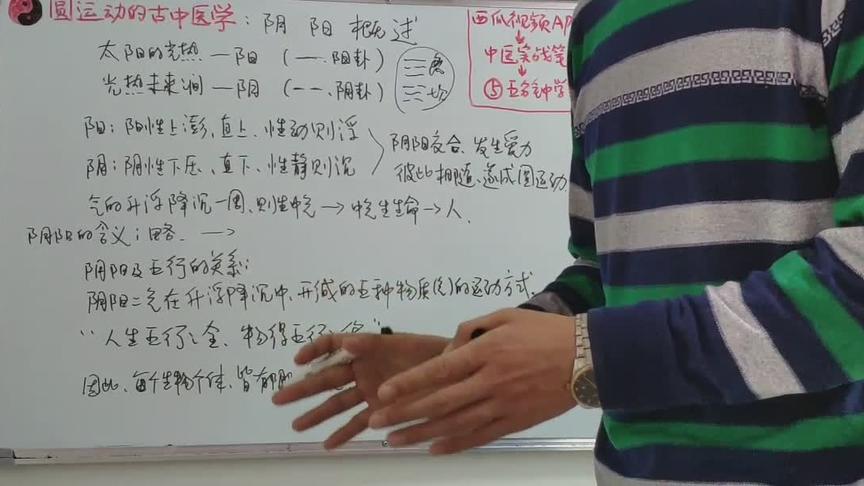 圆运动的古中医学：阴 阳 概述
太阳的光热—阳（一、阳卦）
光热未来间—阴（--、阴卦）
离
坎
西瓜视频AP
中医实战笔
⑤ 中学
阳：阳性上澎、直上、性动则浮
阴：阴性下压、直下、性静则沉
阴阳交合、发生爱力
彼此相随、遂成圆运动
气的升浮降沉一周、则生中气→中气生生命→人.
阴阳的含义；略. →
阴阳及五行的关系：
阴阳二气在升浮降沉中、形成的五种物质(气)的运动方式.
“人生五行之全、物得五行之偏”
因此、每个生物个体、皆有阴